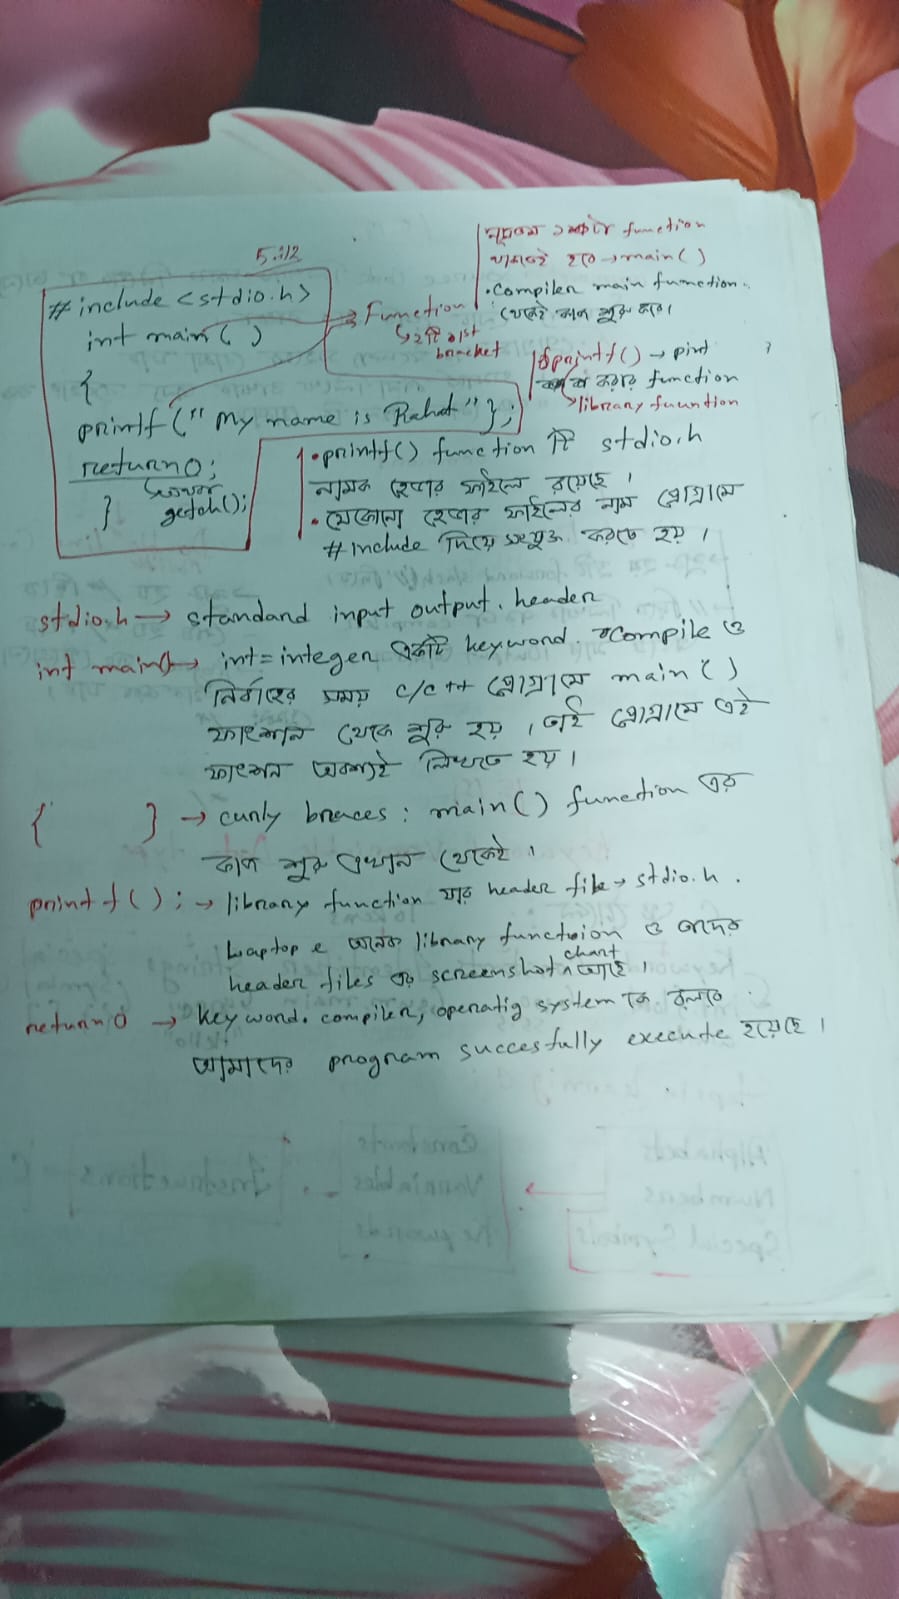 5.12
#include <stdio.h>
int main()
{
printf("My name is Rahat"};
return 0;
getch();
}
Function
↳ ২টি 1st
bracket
নূন্যতম ১একটি function
থাকতেই হবে → main()
• Compiler main function..
থেকেই কাজ শুরু করে।
printf() → pint
করার function
→ library fuuntion
• printf() function টি stdio.h
নামক হেডার ফাইলে রয়েছে।
• যেকোনো হেডার ফাইলের নাম প্রোগ্রামে
#include দিয়ে সংযুক্ত করতে হয়।
stdio.h → standard input output. header
int main() → int = integer একটি keyword. compile ও
নির্বাহের সময় c/c++ প্রোগ্রামে main()
ফাংশান থেকে শুরু হয়। তাই প্রোগ্রামে এই
ফাংশন অবশ্যই লিখতে হয়।
{ } → curly braces: main() function এর
কাজ শুরু এখান থেকেই।
printf(); → library function যার header file → stdio.h.
Laptop e অনেক library functuion ও তাদের
header files এর screenshot ^ chart আছে।
return 0 → keyword. compiler, operatig system কে বলবে
আমাদের program succesfully execute হয়েছে।